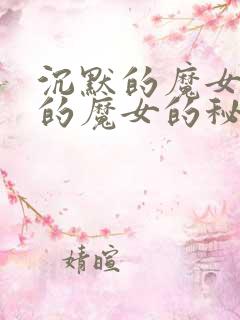 沉默的魔女
的魔女的秘
婧暄